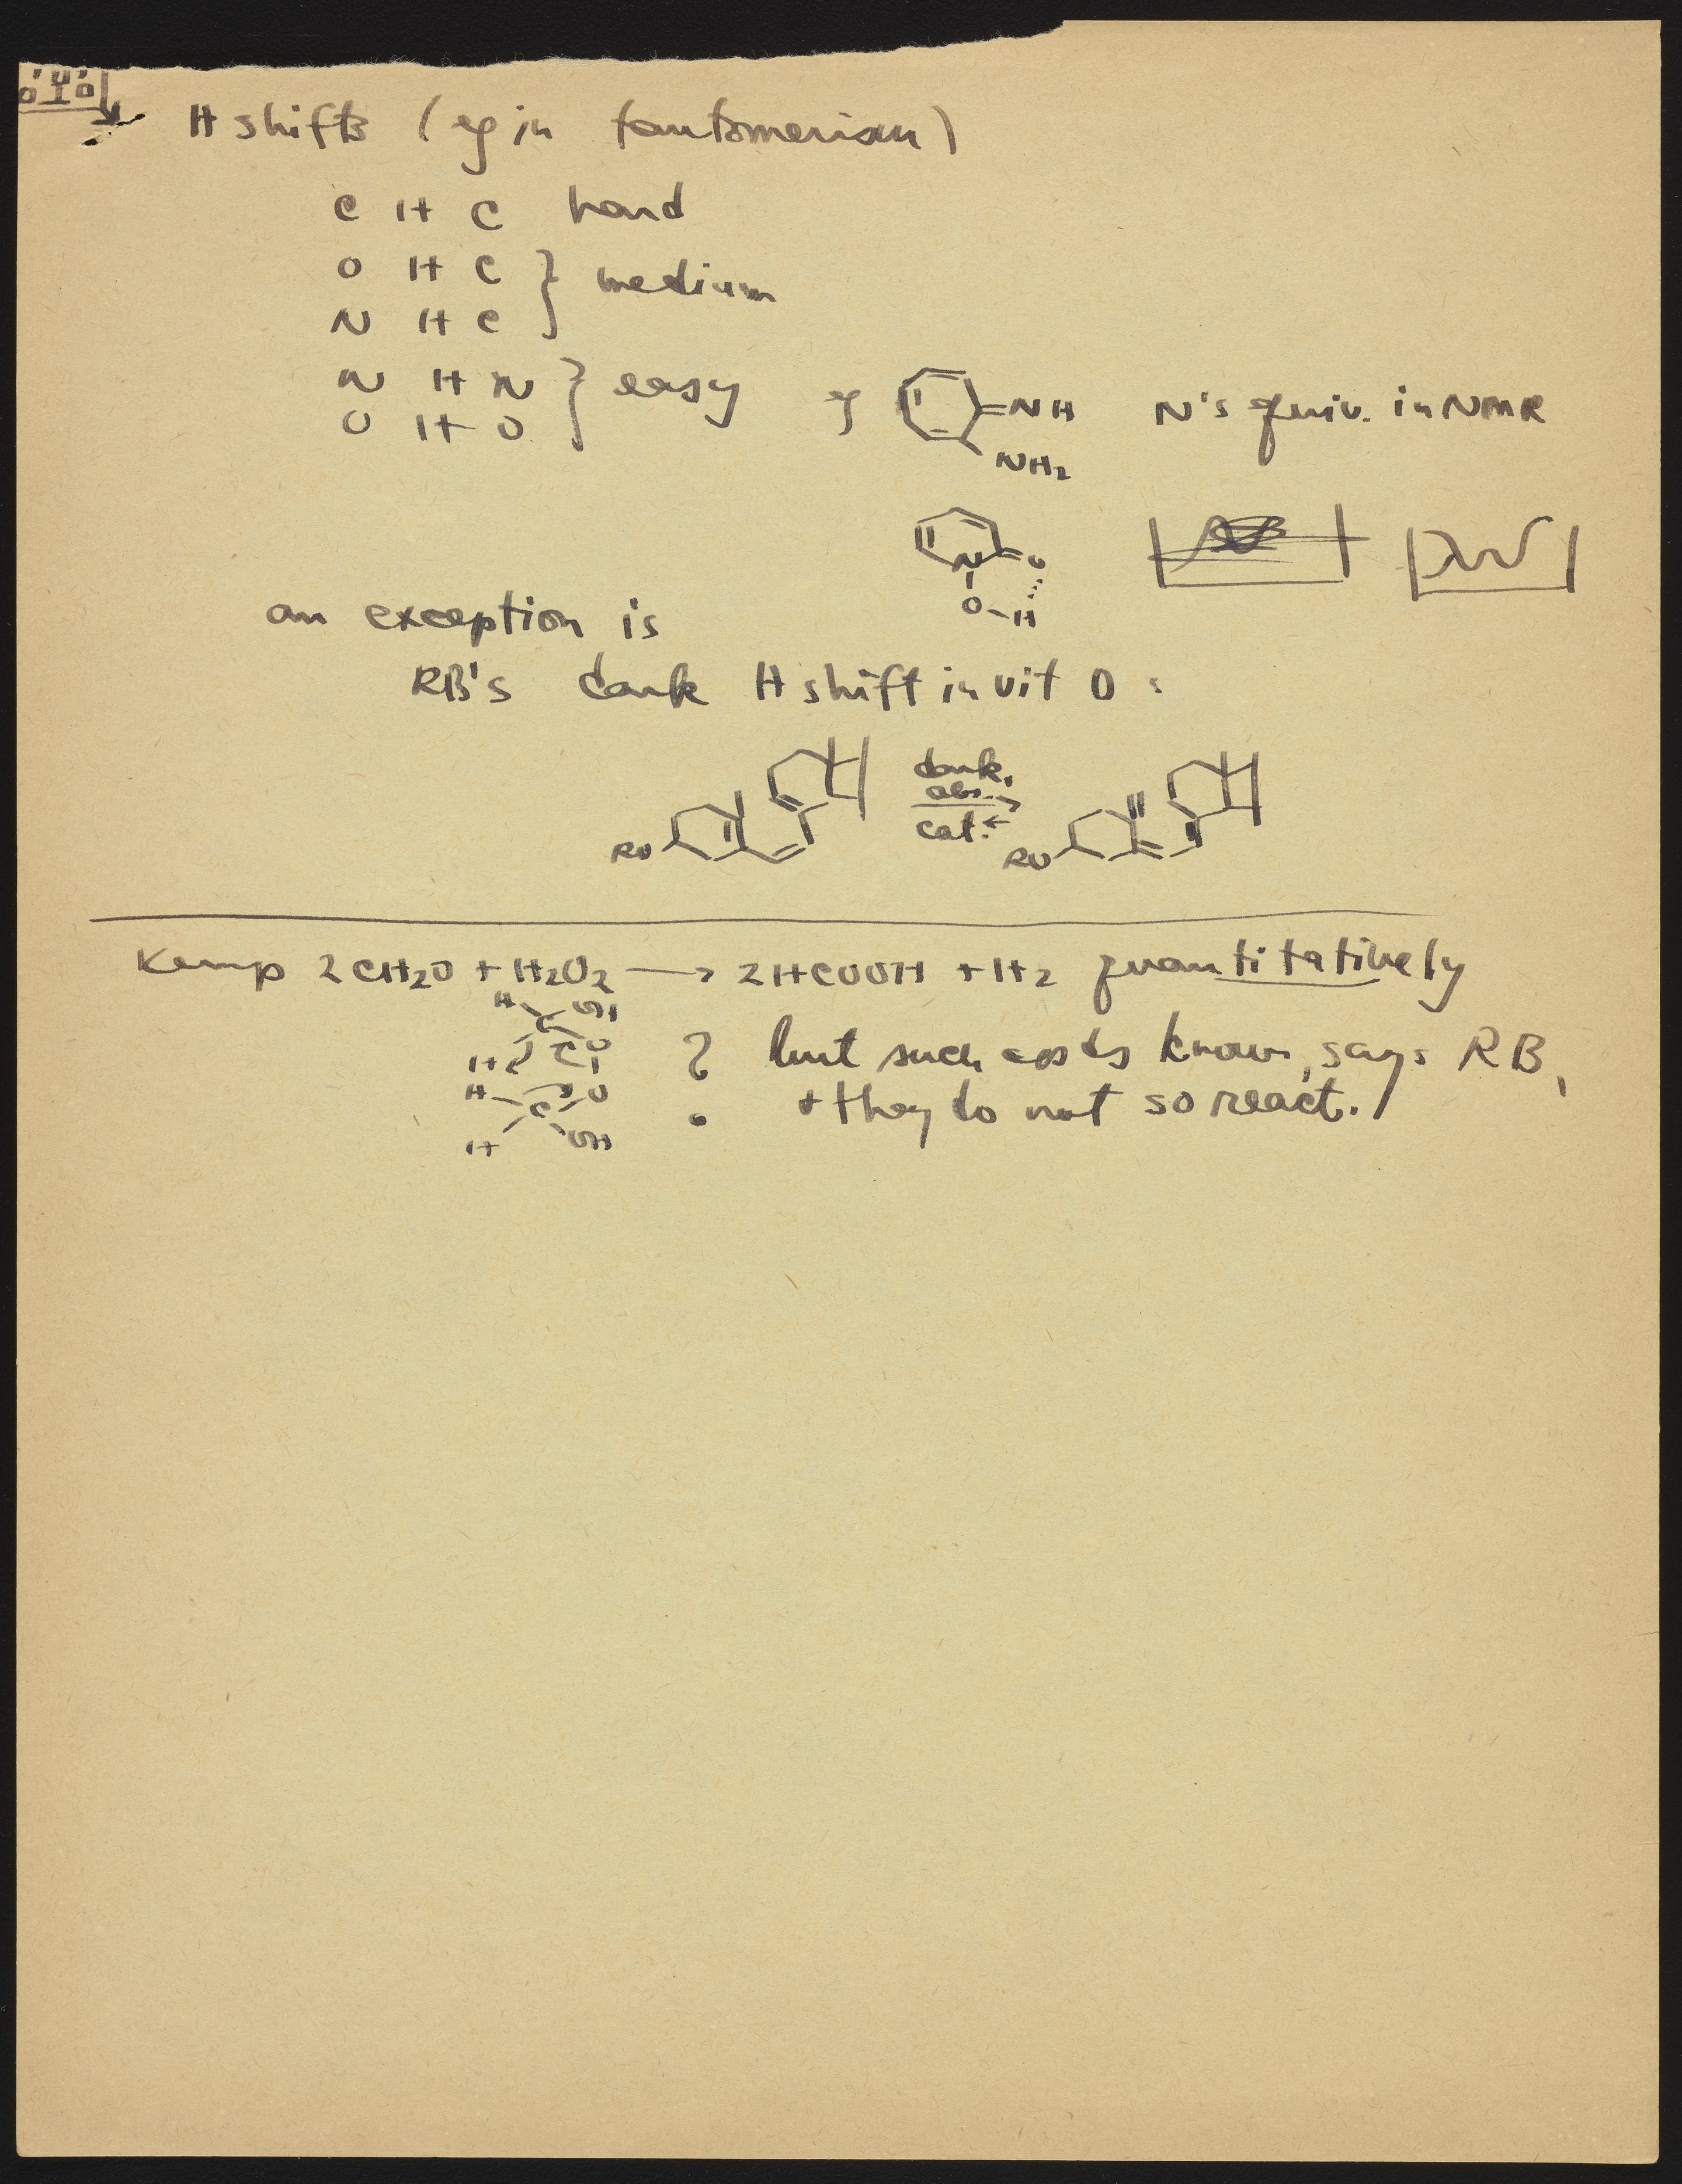 H shifts (eg in tautomerism)
C H C hard
O H C } medium
N H C
N H N } easy eg =NH N's equiv. in NMR
O H O
NH2
N O
O-H
an exception is
RB's dark H shift in vit D:
dark,
cat.
RO RO
Kemp 2CH2O + H2O2 → 2HCOOH + H2 quantitatively
H OH
H C O ? but such cpds known, says RB,
H C O + they do not so react.
H OH